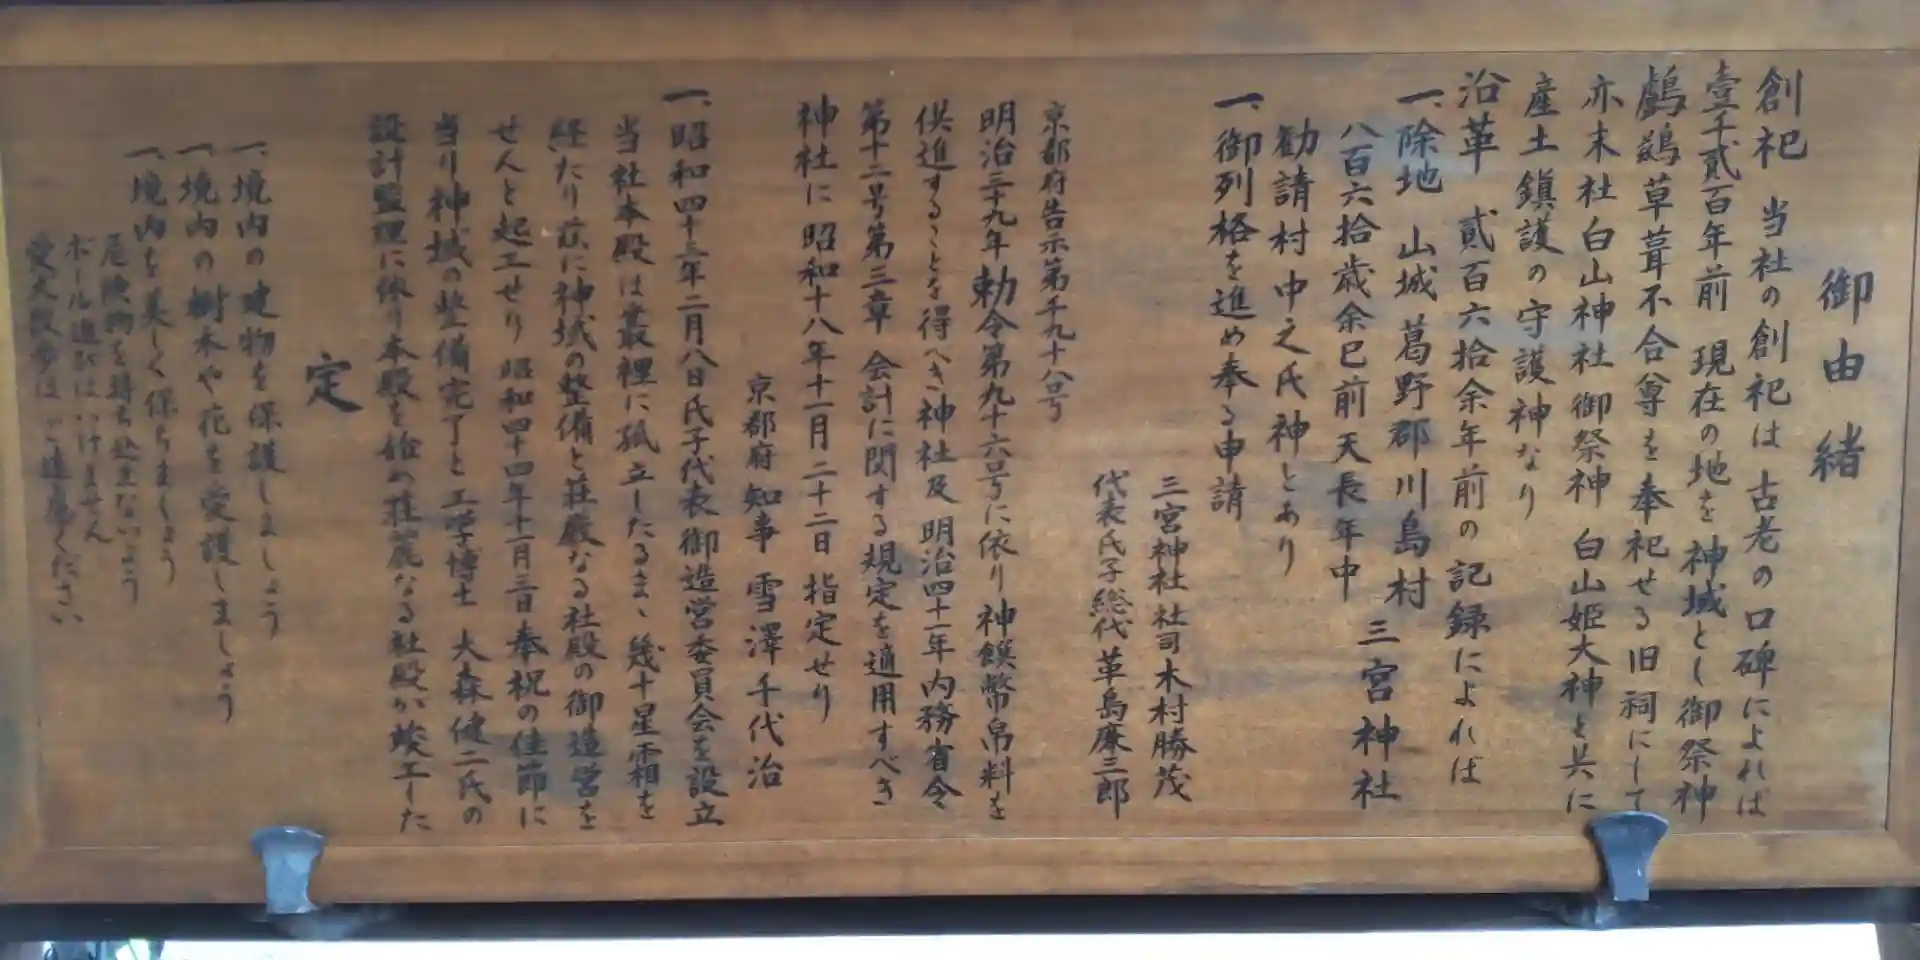 御由緒
創祀 当社の創祀は古老の口碑によれば
壹千貳百年前 現在の地を神域とし御祭神
鸕鷀草葺不合尊を奉祀せる旧祠にして
亦末社白山神社 御祭神 白山姫大神と共に
産土鎮護の守護神なり
沿革 貳百六拾余年前の記録によれば
一、除地 山城葛野郡川島村 三宮神社
八百六拾歳余已前天長年中
勧請村中之氏神とあり
一、御列格を進め奉る申請
三宮神社社司木村勝茂
代表氏子総代革島庫三郎
京都府告示第千九十八号
明治三十九年勅令第九十六号に依り神饌幣帛料を
供進することを得べき神社及明治四十一年内務省令
第十二号第三章 会計に関する規定を適用すべき
神社に昭和十八年十一月二十二日指定せり
京都府知事 雪澤千代治
一、昭和四十三年二月八日氏子代表御造営委員会を設立
当社本殿は叢裡に孤立したるまゝ幾十星霜を
経たり茲に神域の整備と荘厳なる社殿の御造営を
せんと起工せり 昭和四十四年十一月三日奉祝の佳節に
当り神域の整備完了と工学博士 大森健二氏の
設計監理に依り本殿を始め荘麗なる社殿が竣工した
定
一、境内の建物を保護しましょう
一、境内の樹木や花を愛護しましょう
一、境内を美しく保ちましょう
危険物を持ち込まないよう
ボール遊びはいけません
愛犬散歩はご遠慮ください